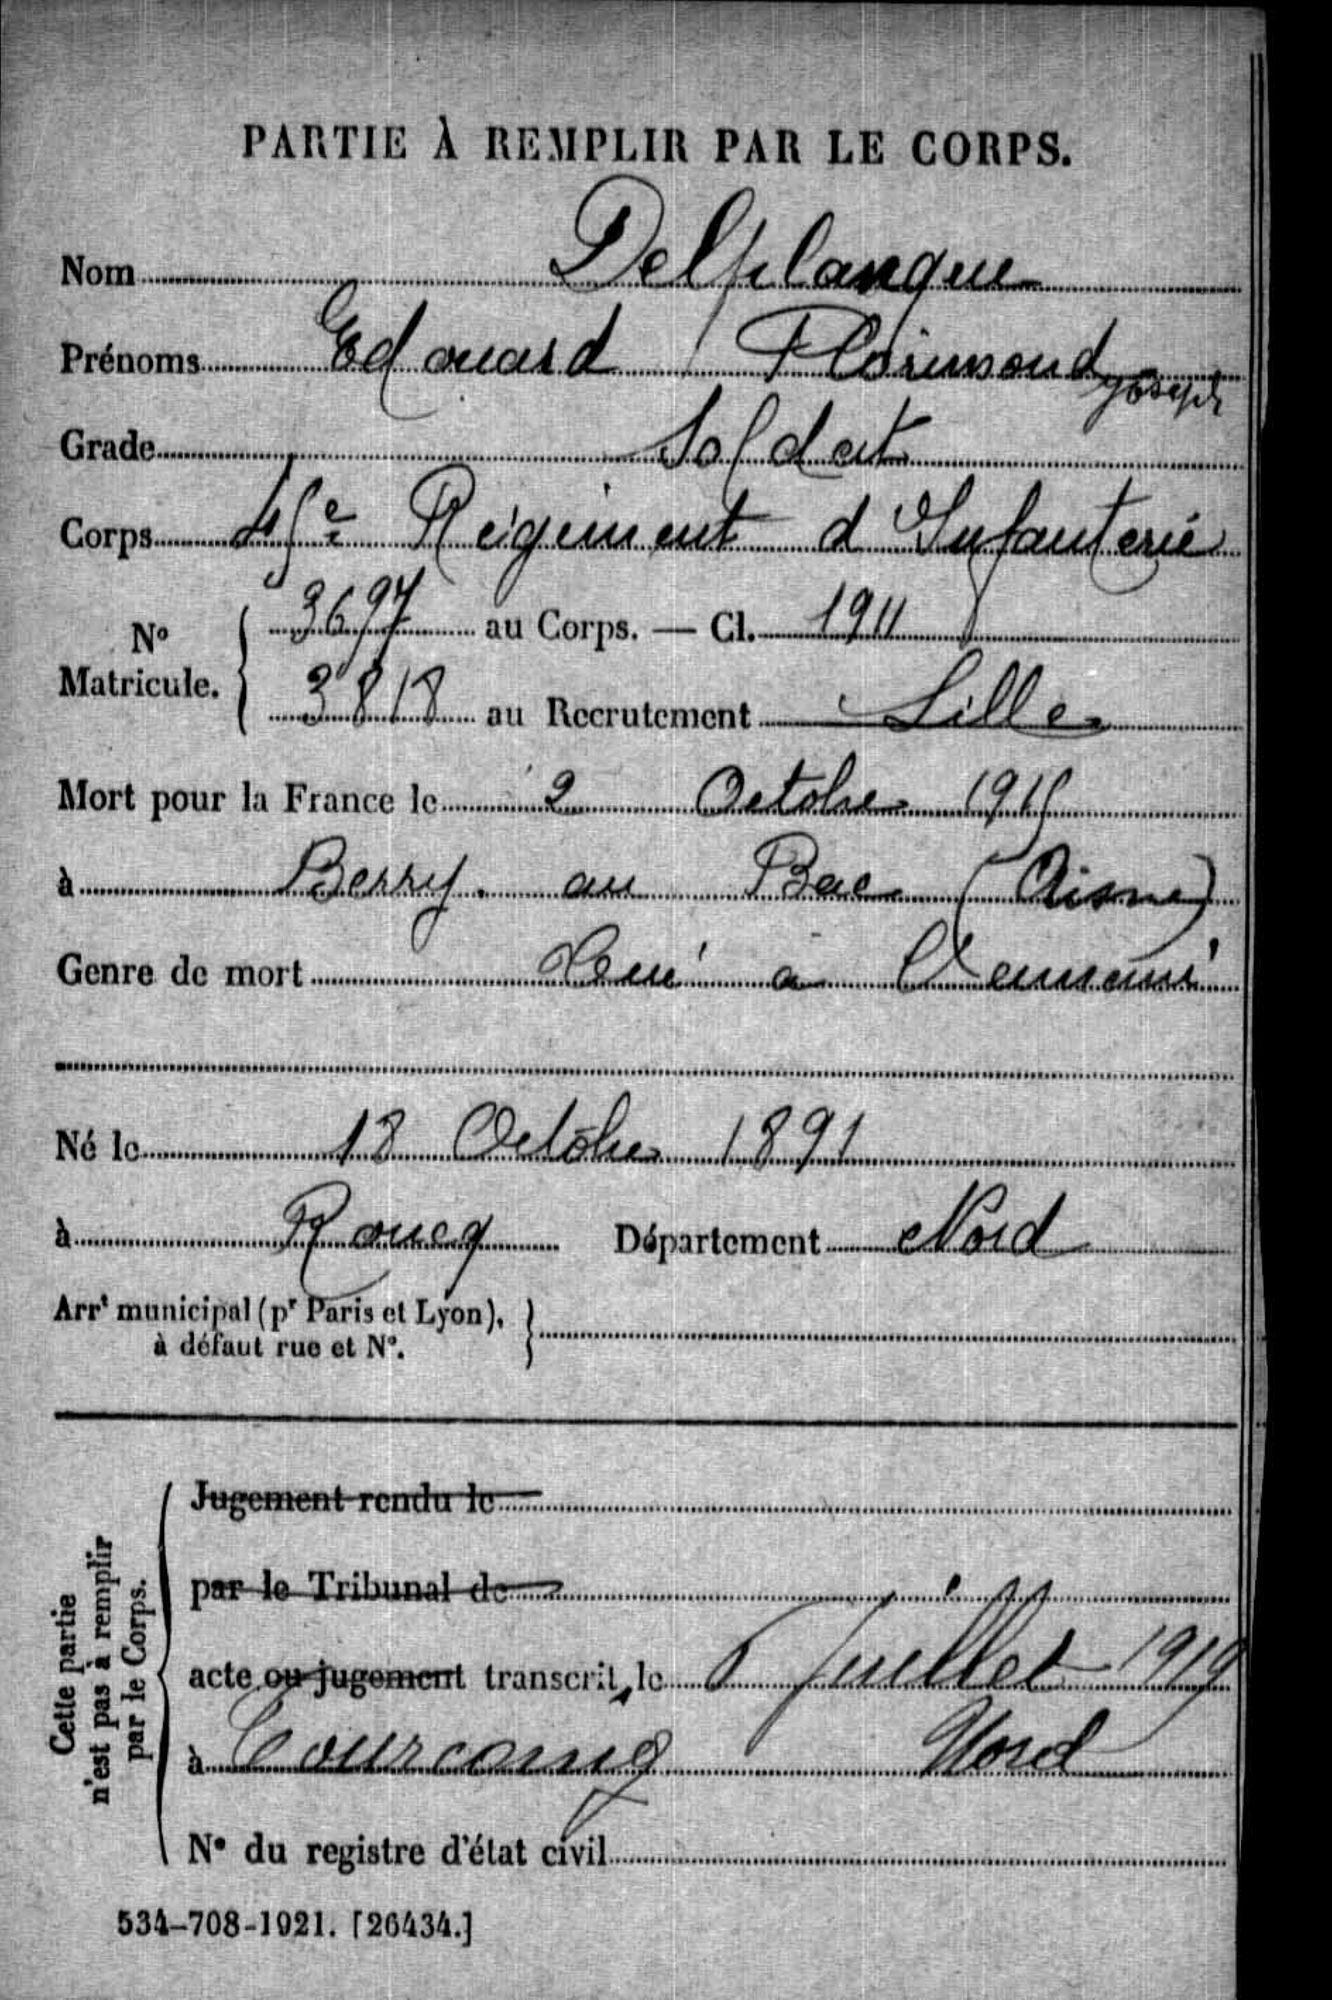 PARTIE À REMPLIR PAR LE CORPS.
Nom Delplanque
Prénoms Edouard Florimond Joseph
Grade Soldat
Corps 45e Régiment d'Infanterie
N° Matricule. { 3697 au Corps. — Cl. 1911
3818 au Recrutement Lille
Mort pour la France le 2 Octobre 1915
à Berry au Bac (Aisne)
Genre de mort Tué à l'ennemi
Né le 18 Octobre 1891
à Roucq Département Nord
Arrt municipal (pr Paris et Lyon), à défaut rue et N°. }
Cette partie n'est pas à remplir par le Corps.
Jugement rendu le
par le Tribunal de
acte ou jugement transcrit, le Juillet 1919
à Tourcoing Nord
N° du registre d'état civil
534-708-1921. [26434.]